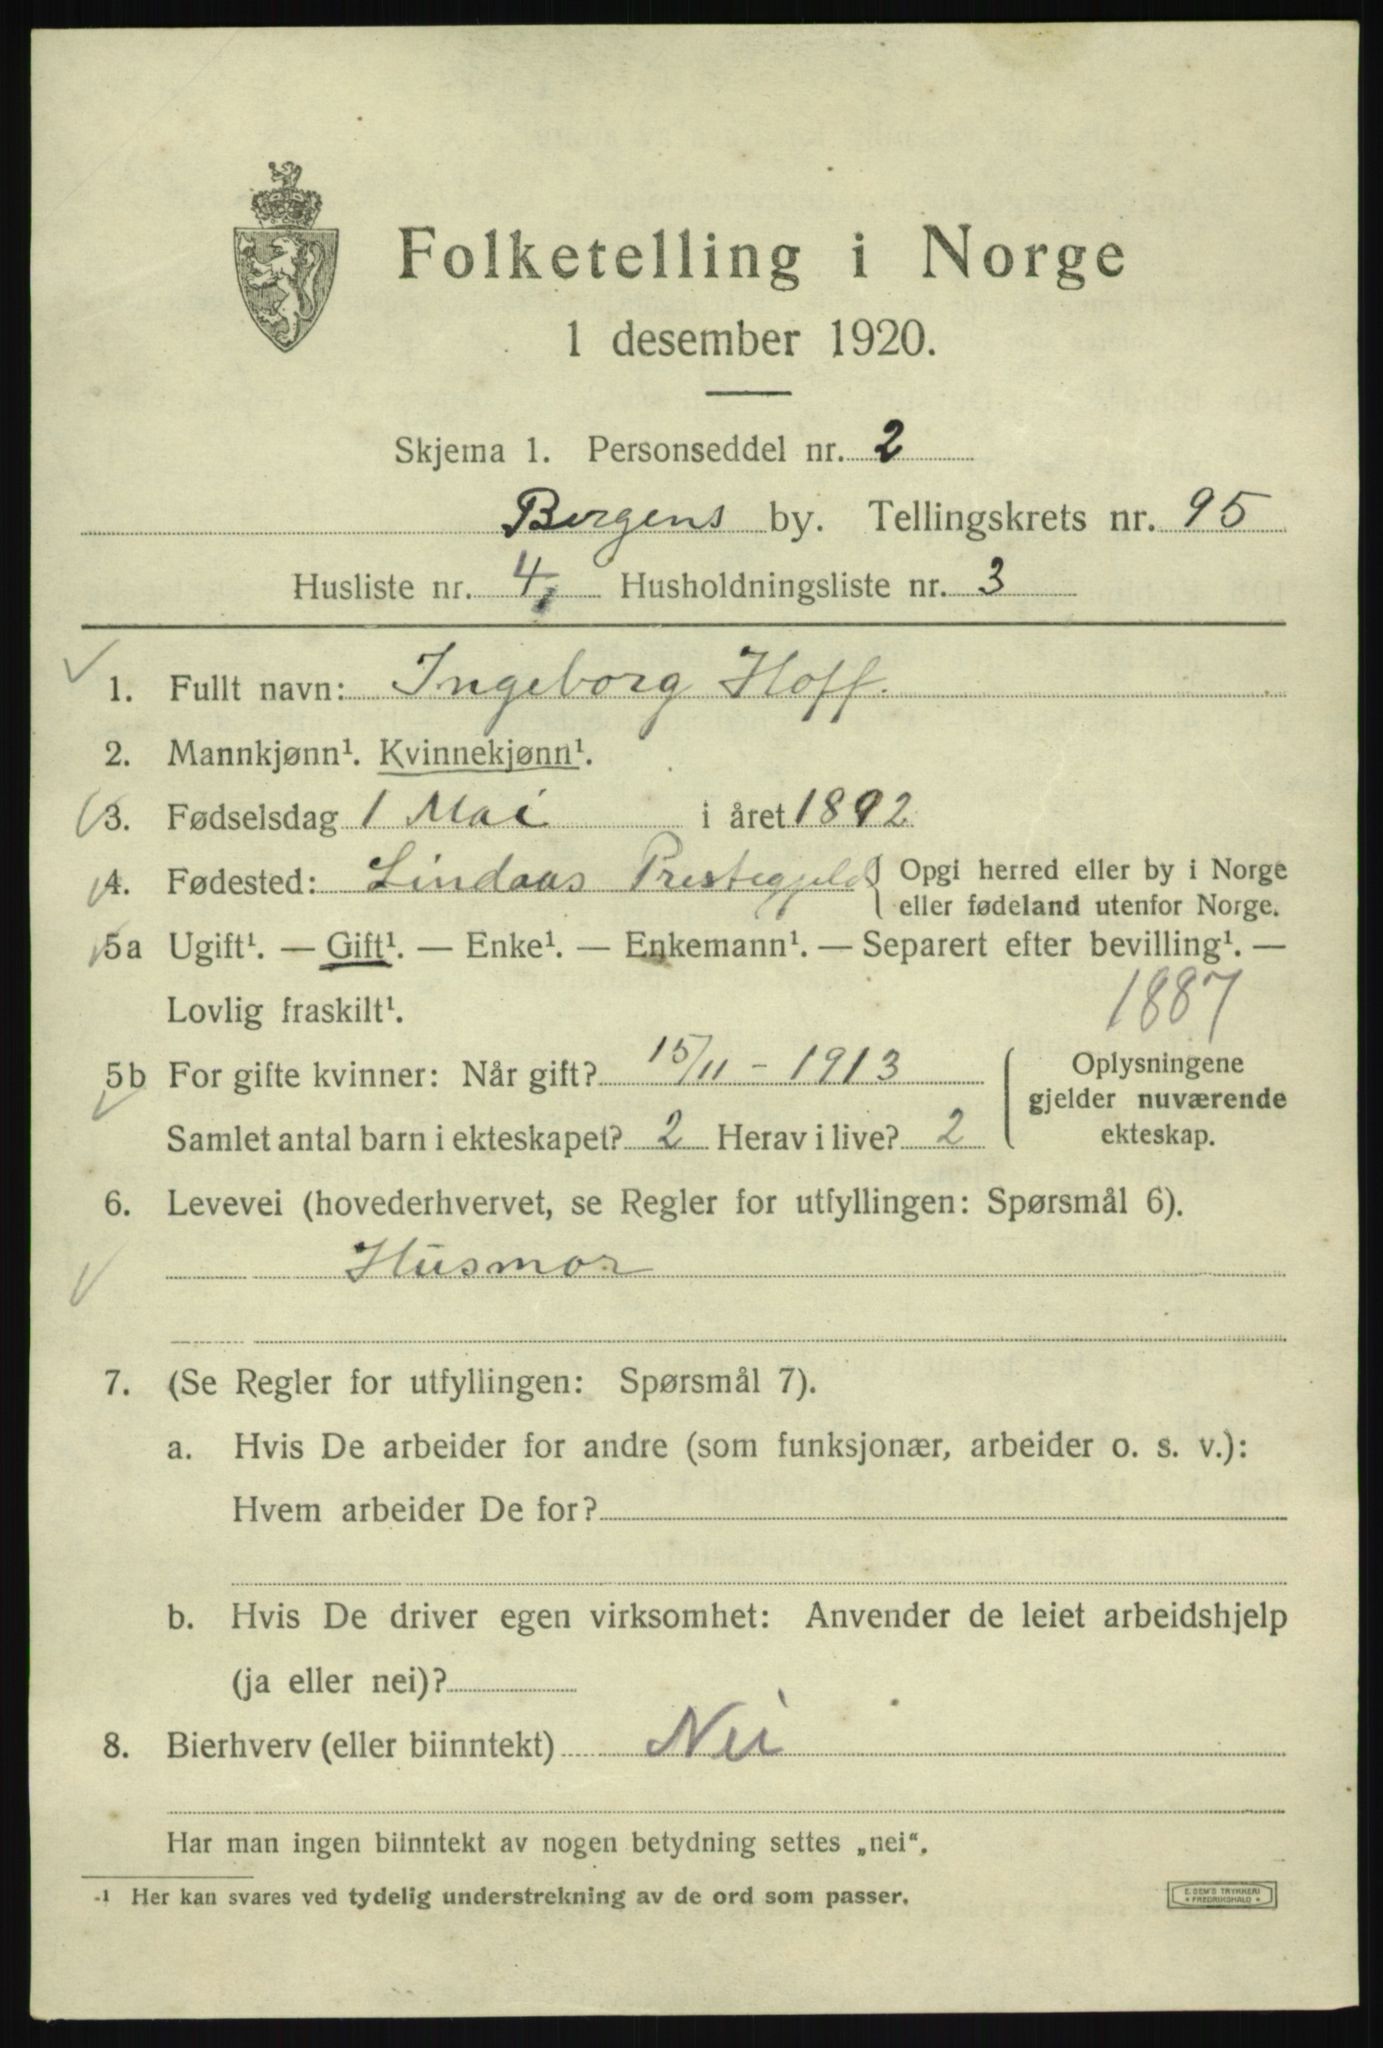 Folketelling i Norge
1 desember 1920.
Skjema 1. Personseddel nr. 2
Bergens by. Tellingskrets nr. 95
Husliste nr. 4, Husholdningsliste nr. 3
1. Fullt navn: Ingeborg Hoff.
2. Mannkjønn¹. Kvinnekjønn¹.
3. Fødselsdag 1 Mai i året 1892
4. Fødested: Lindaas Prestegjeld { Opgi herred eller by i Norge
eller fødeland utenfor Norge.
5a Ugift¹. — Gift¹. — Enke¹. — Enkemann¹. — Separert efter bevilling¹. —
Lovlig fraskilt¹.
1887
5b For gifte kvinner: Når gift? 15/11 - 1913
Samlet antal barn i ekteskapet? 2 Herav i live? 2
Oplysningene
gjelder nuværende
ekteskap.
6. Levevei (hovederhvervet, se Regler for utfyllingen: Spørsmål 6).
Husmor
7. (Se Regler for utfyllingen: Spørsmål 7).
a. Hvis De arbeider for andre (som funksjonær, arbeider o. s. v.):
Hvem arbeider De for?
b. Hvis De driver egen virksomhet: Anvender de leiet arbeidshjelp
(ja eller nei)?
8. Bierhverv (eller biinntekt) Nei
Har man ingen biinntekt av nogen betydning settes „nei“.
¹ Her kan svares ved tydelig understrekning av de ord som passer.
E. SEM'S TRYKKERI
* FREDRIKSHALD *